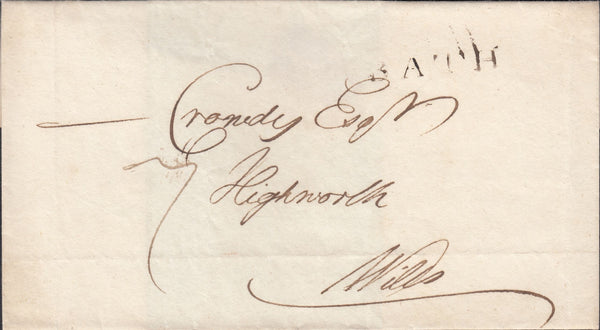 BATH
— Crowdy Esqr.
Highworth
Wilts